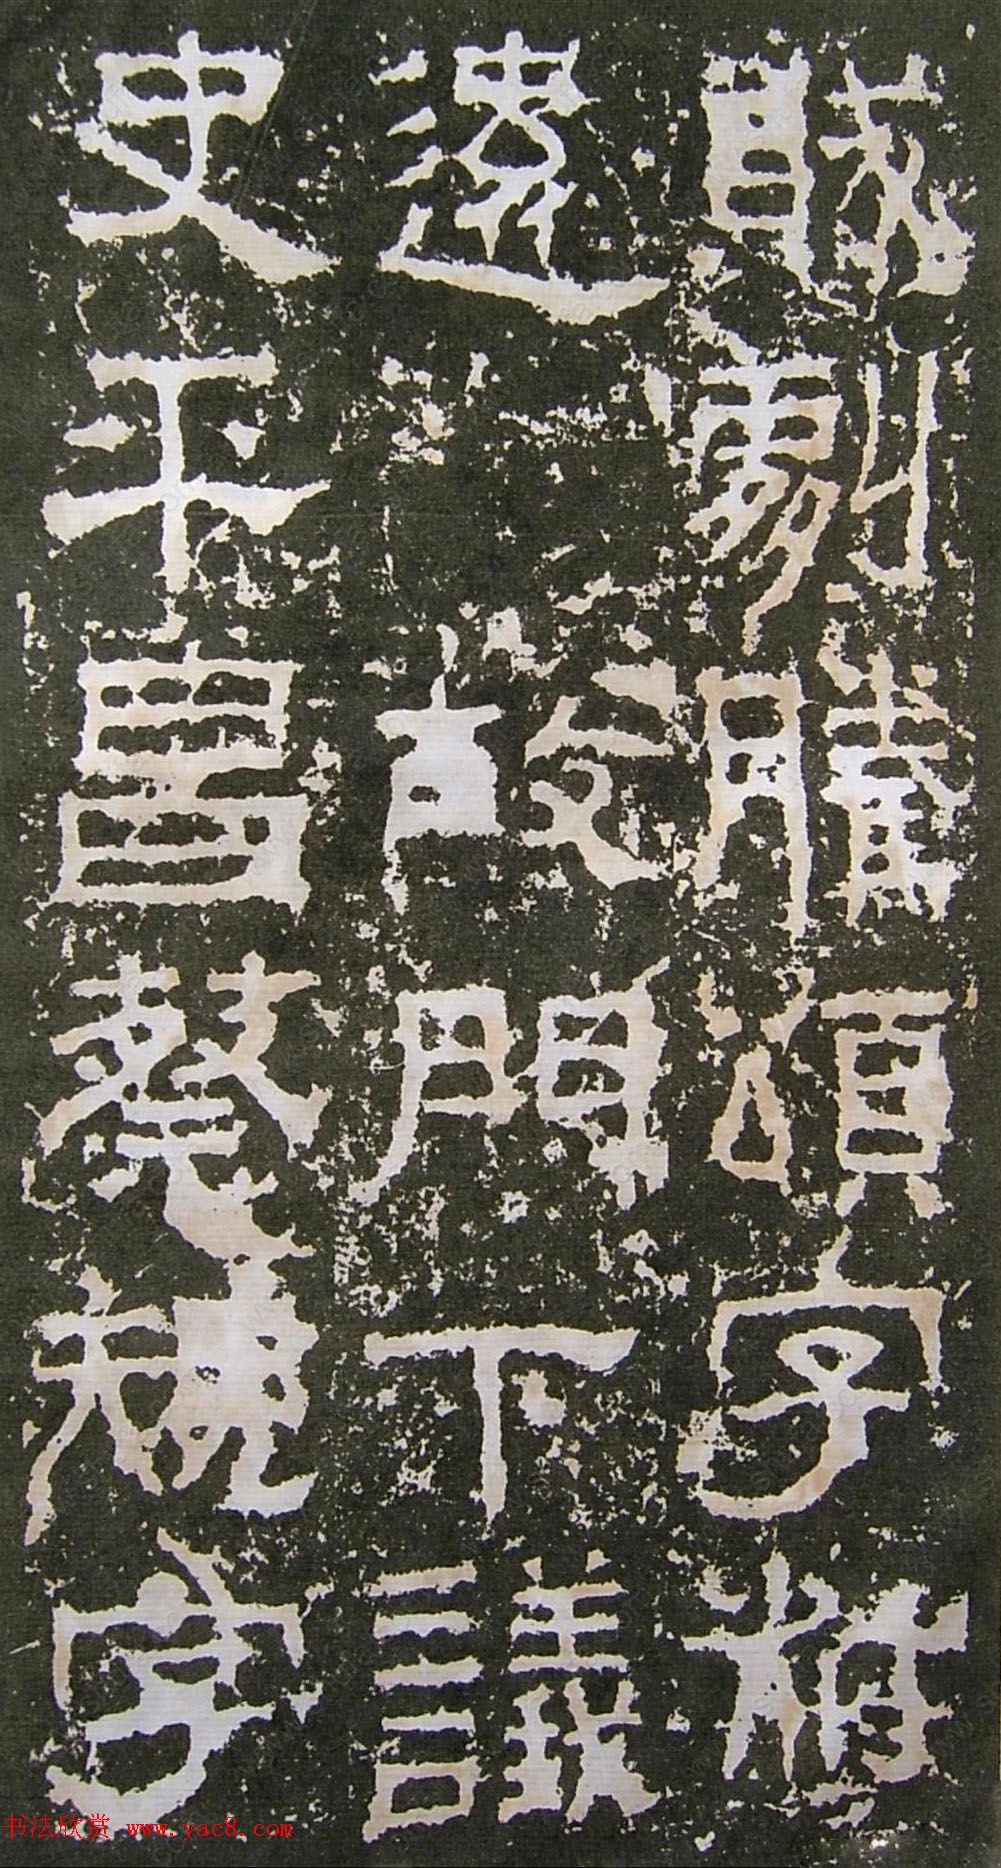 賊劇騰頌字叔
遠故門下議
史平昌蔡規字
书法欣赏 www.yac8.com